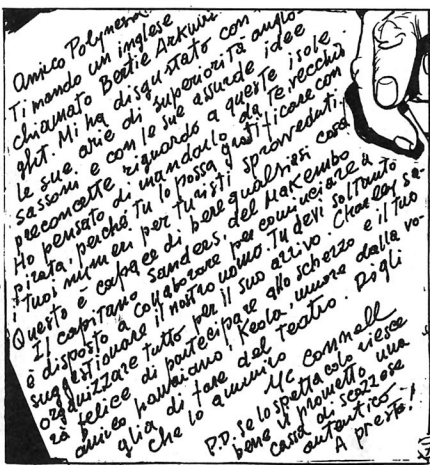 Amico Polynesia
Ti mando un inglese
chiamato Bertie Arkwri-
ght. Mi ha disgustato con
le sue arie di superiorità anglo-
sassoni e con le sue assurde idee
preconcette riguardo a queste isole.
Ho pensato di mandarlo da te, vecchio
pirata, perché tu lo possa gratificare con
i tuoi numeri per turisti sprovveduti.
Questo è capace di bere qualsiasi cosa
Il capitano Sanders, del Makembo
è disposto a collaborare per cominciare a
suggestionare il nostro uomo. Tu devi soltanto
organizzare tutto per il suo arrivo. Charley sa-
rà felice di partecipare allo scherzo e il tuo
amico hawaiano, Keola, muore dalla vo-
glia di fare del teatro. Digli
che lo ammiro
Mc Connell
P.D. se lo spettacolo riesce
bene ti prometto una
cassa di scozzese
autentico.
A presto!